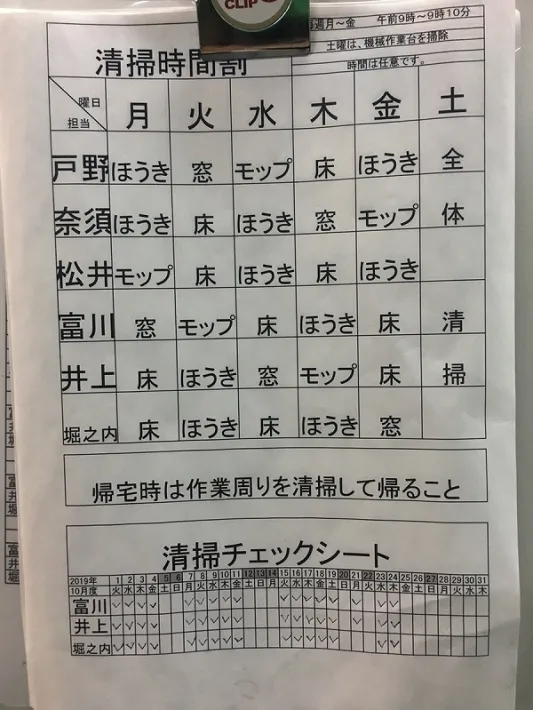 CLIP
週月～金　午前9時～9時10分
土曜は、機械作業台を掃除
時間は任意です。
清掃時間割
曜日 担当 月 火 水 木 金 土
戸野 ほうき 窓 モップ 床 ほうき 全
奈須 ほうき 床 ほうき 窓 モップ 体
松井 モップ 床 ほうき 床 ほうき
富川 窓 モップ 床 ほうき 床 清
井上 床 ほうき 窓 モップ 床 掃
堀之内 床 ほうき 床 ほうき 窓
帰宅時は作業周りを清掃して帰ること
清掃チェックシート
2019年 1 2 3 4 5 6 7 8 9 10 11 12 13 14 15 16 17 18 19 20 21 22 23 24 25 26 27 28 29 30 31
10月度 火 水 木 金 土 日 月 火 水 木 金 土 日 月 火 水 木 金 土 日 月 火 水 木 金 土 日 月 火 水 木
富川
井上
堀之内
富
井
堀
富
井
堀